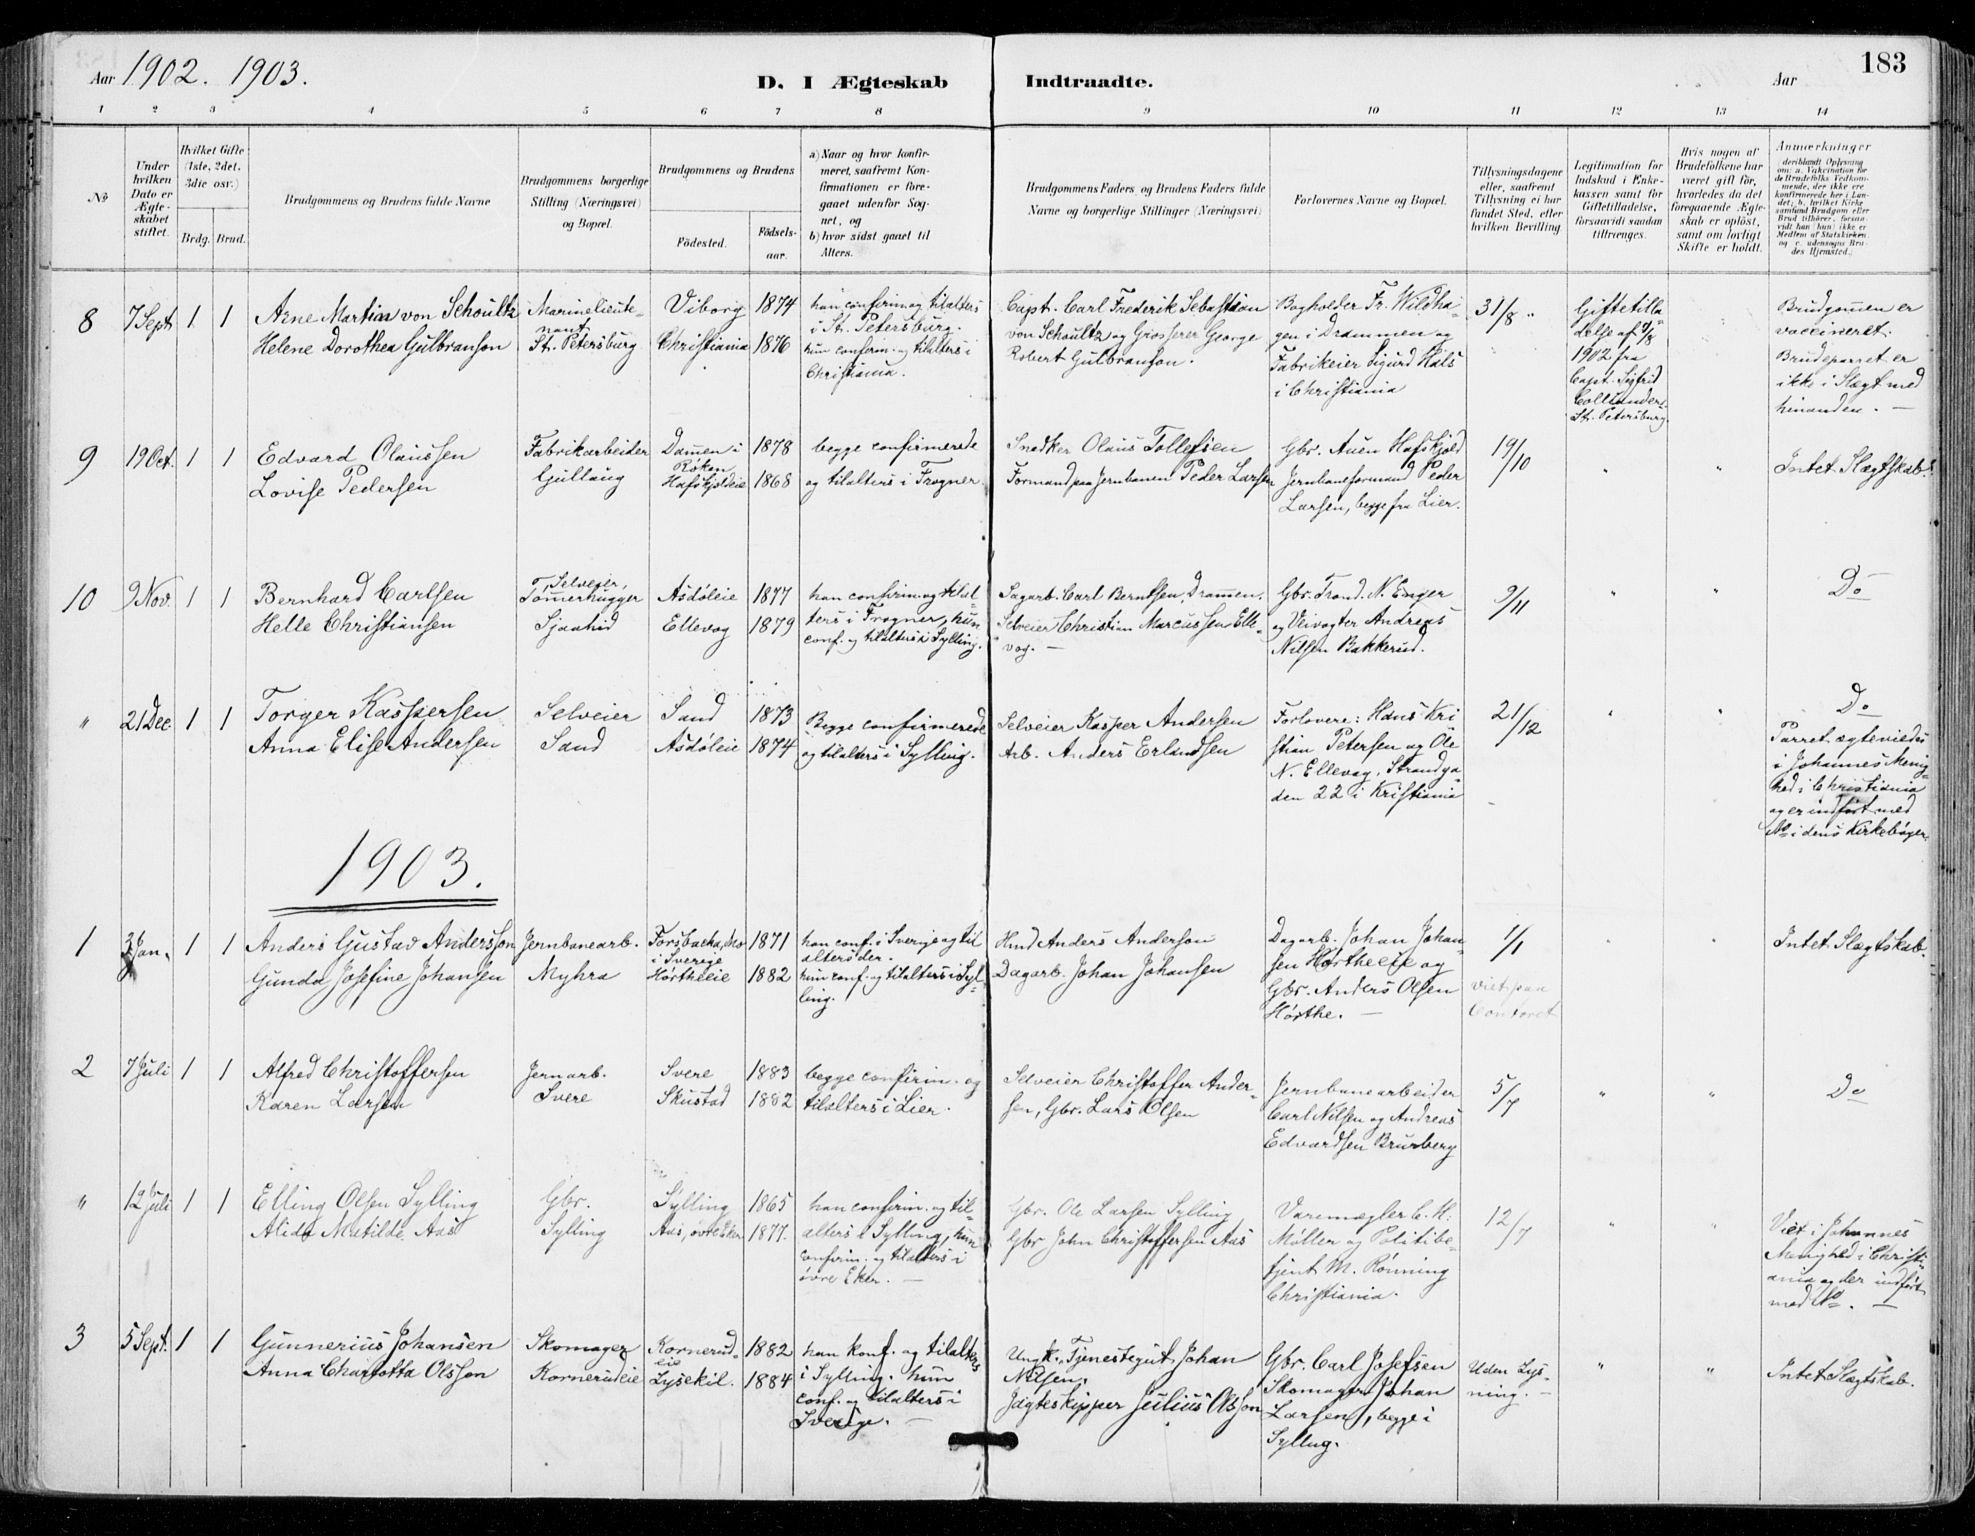 183
Aar 1902. 1903.
D. I Ægteskab Indtraadte.
Aar
1 2 3 4 5 6 7 8 9 10 11 12 13 14
No
Under hvilken Dato er Ægteskabet stiftet.
Hvilket Gifte (1ste, 2det, 3die osv.)
Brdg. Brud.
Brudgommens og Brudens fulde Navne
Brudgommens borgerlige Stilling (Næringsvei) og Bopæl.
Brudgommens og Brudens
Fødested.
Fødselsaar.
a) Naar og hvor konfirmeret, saafremt Konfirmationen er foregaaet udenfor Sognet, og
b) hvor sidst gaaet til Alters.
Brudgommens Faders og Brudens Faders fulde Navne og borgerlige Stillinger (Næringsvei)
Forlovernes Navne og Bopæl.
Tillysningsdagene eller, saafremt Tillysning ei har fundet Sted, efter hvilken Bevilling.
Legitimation for Indskud i Enkekassen samt for Giftetilladelse, forsaavidt saadan tiltrænges.
Hvis nogen af Brudefolkene har været gift før, hvorledes da det foregaaende Ægteskab er opløst, samt om lovligt Skifte er holdt.
Anmærkninger (deriblandt Oplysning om: a. Vakcination for de Brudefolks Vedkommende, der ikke ere konfirmerede her i Landet; b. hvilket Kirkesamfund Brudgom eller Brud tilhører, forsaavidt han (hun) ikke er Medlem af Statskirken, og c. udensogns Brudes Hjemsted.)
8 7 Sept 1 1
Arne Martin von Schoultz
Helene Dorothea Gulbranson
Marinelieutenant
St. Petersburg
Viborg 1874
Christiania 1876
han confirm. og tilalters
i St. Petersburg.
hun confirm. og tilalters i
Christiania.
Capt. Carl Frederik Sebastian
von Schoultz og Grosserer George
Robert Gulbranson.
Bogholder Fr. Wildhagen i Drammen og
Fabrikeier Sigurd Hals
i Christiania
31/8 "
Giftetilladelse af
1902 fra
Capt. Sigfrid
St. Petersburg.
Brudgommen er
vaccineret.
Brudeparret er
ikke i Slægt med
hinanden. —
9 19 Oct. 1 1
Edvard Olaussen
Lovise Pedersen
Fabrikarbeider
Gullaug
Dammen i
Røken 1878
Hafskjoldeie 1868
begge confirmerede
og tilalters i Frogner.
Snedker Olaus Tollefsen
Formand paa Jernbanen Peder Larsen
Gbr. Auen Hafskjold
Jernbaneformand Peder
Larsen, begge fra Lier.
19/10 " "
Intet Slægtskab.
10 9 Nov. 1 1
Bernhard Carlsen
Helle Christiansen
Selveier,
Tømmerhugger
Sjaatid
Asdøleie 1877
Ellevog 1879
han confirm. og tilalters i Frogner, hun
conf. og tilalters i Sylling.
Sagarb. Carl Berntsen, Drammen.
Selveier Christian Marcussen Ellevog. —
Gbr. Trond. N. Enger
og Veivogter Andreas
Nilsen Bakkerud.
9/11 " "
Do
" 21 Dec. 1 1
Torger Kaspersen
Anna Elise Andersen
Selveier
Sand
Sand 1873
Asdøleie 1874
Begge confirmerede
og tilalters i Sylling.
Selveier Kasper Andersen
Arb. Anders Erlandsen
Forlovere: Hans Kristian Petersen og Ole
N. Ellevog, Strandgaden 22 i Kristiania
21/12 " "
Do
Parret ægteviedes
i Johannes Menighed i Christiania
og er indført med
No i dens Kirkebøger.
1903.
1 3 Jan. 1 1
Anders Gustav Andersson
Gunda Josefine Johansen
Jernbanearb.
Myhra
i Sverige 1871
Hørtheleie 1882
han conf. i Sverige og tilalters der.
hun conf. og tilalters i Sylling.
Hmd Anders Anderson
Dagarb. Johan Johansen
Dagarb. Johan Johansen Hørtheleie og
Gbr. Anders Olsen
Hørthe. —
1/1
viet paa
Contoret
" "
Intet Slægtskab.
2 7 Juli 1 1
Alfred Christoffersen
Karen Larsen
Jernarb.
Svere
Svere 1883
Skustad 1882
begge confirm. og
tilalters i Lier.
Selveier Christoffer Andersen, Gbr. Lars Olsen
Jernbanearbeider
Carl Nilsen og Andreas
Edvardsen Brurberg
5/7 " "
Do
" 12 Juli 1 1
Elling Olsen Sylling
Alida Matilde Aas
Gbr.
Sylling
Sylling 1865
Aas, øvre Eker 1877.
han confirm. og tilalters i Sylling, hun
confirm. og tilalters i
øvre Eker. —
Gbr. Ole Larsen Sylling
Gbr John Christoffersen Aas
Varemægler C. H.
Møller og Politibetjent M. Rønning
Christiania.
12/7 " "
Viet i Johannes
Menighed i Christiania og der indført
med No. —
3 5 Sept. 1 1
Gunnerius Johansen
Anna Charlotta Olsson
Skomager
Kornerudeie
Kornerudeie 1882
Lysekil. 1884
han konf. og tilalters
i Sylling. hun
conf. og tilalters i
Sverige. —
Ungk., Tjenestegut Johan
Nilsen.
Jagteskipper Julius Olsson
Gbr. Carl Josefsen
Skomager Johan
Larsen, begge i
Sylling.
Uden Lysning. —
" "
Intet Slægtskab.